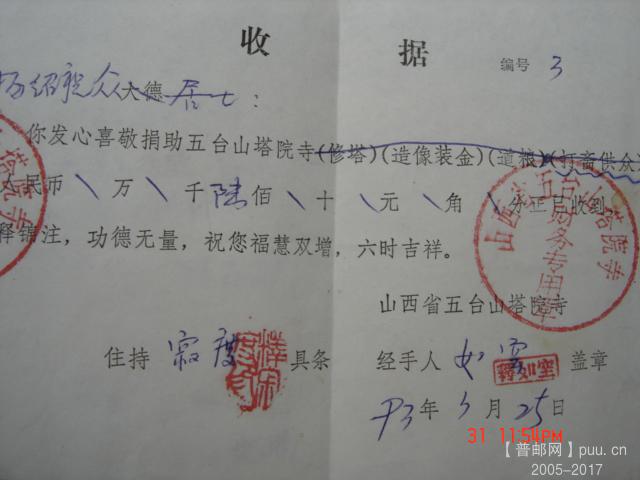 收 据
编号 3
绍 众大德居士:
你发心喜敬捐助五台山塔院寺(修塔)(造像装金)(道粮)(打斋供众
人民币 \ 万 \ 千 陆 佰 \ 十 \ 元 \ 角 \ 分正已收到,
释锦注,功德无量,祝您福慧双增,六时吉祥。
山西省五台山塔院寺
财务专用章
山西省五台山塔院寺
住持 寂度 具条 经手人 如空 盖章
释如空
93年5月25日
31 11:54PM
【普邮网】puu.cn
2005-2017